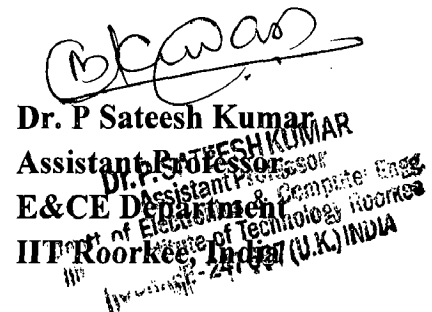 Dr. P Sateesh Kumar
Assistant Professor
E&CE Department
IIT Roorkee, India
Dr. P. SATEESH KUMAR
Assistant Professor
Deptt of Electronics & Computer Engg.
Institute of Technology Roorkee
(U.K.) INDIA